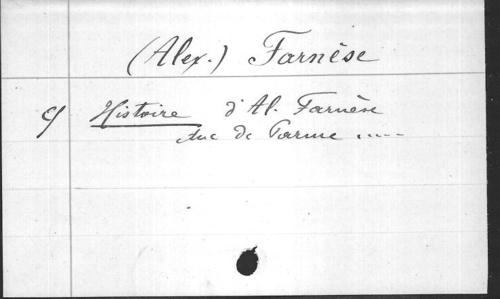 (Alex.) Farnèse
cf Histoire d'Al. Farnèse
duc de Parme .....